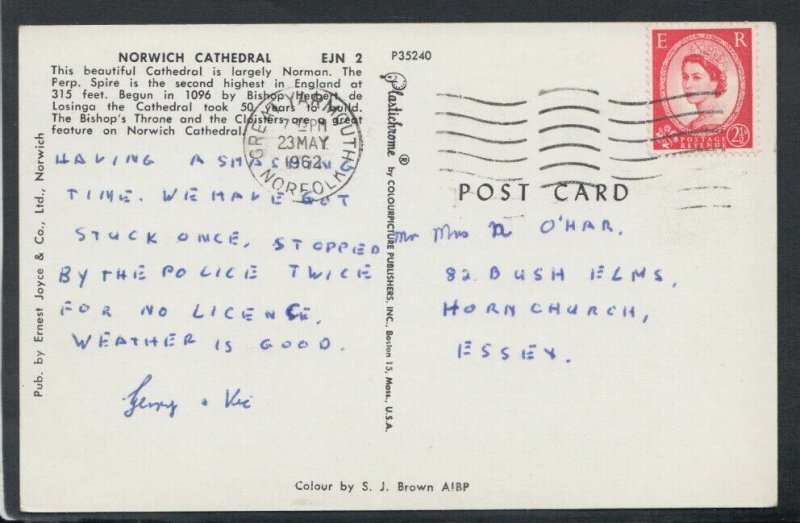 NORWICH CATHEDRAL EJN 2
This beautiful Cathedral is largely Norman. The
Perp. Spire is the second highest in England at
315 feet. Begun in 1096 by Bishop Herbert de
Losinga the Cathedral took 50 years to build.
The Bishop's Throne and the Cloisters are a great
feature on Norwich Cathedral.
HAVING A SMASHING
TIME. WE HAVE GOT
STUCK ONCE, STOPPED
BY THE POLICE TWICE
FOR NO LICENCE.
WEATHER IS GOOD.
Pub. by Ernest Joyce & Co., Ltd., Norwich
P35240
Plastichrome ® by COLOURPICTURE PUBLISHERS, INC., Boston 15, Mass., U.S.A.
GREAT YARMOUTH
PM
23 MAY
1962
NORFOLK
E R
POSTAGE
REVENUE
2½D
POST CARD
Mr Mrs O'HAR.
82. BUSH ELMS,
HORNCHURCH,
ESSEX.
Colour by S. J. Brown AIBP